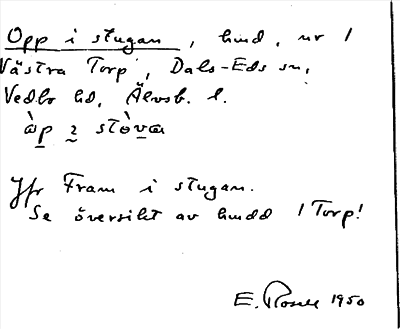 Opp i stugan, hmd, nr 1
Västra Torp, Dals-Eds sn,
Vedbo hd, Älvsb. l.
àp ı stòva
Jfr Fram i stugan.
Se översikt av hmdd / Torp!
E. Rosell 1950